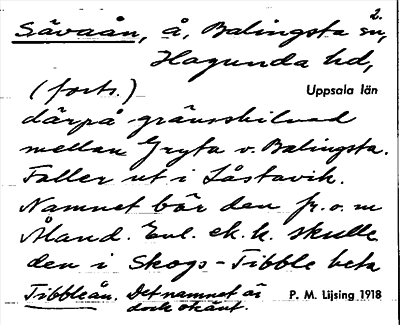 2.
Sävaån, å, Balingsta sn,
Hagunda hd,
(forts.) Uppsala län
därpå gränsskilnad
mellan Gryta o. Balingsta.
Faller ut i Låstavik.
Namnet bör den fr. o. m
Åland. Enl. ek. k. skulle
den i Skogs-Tibble heta
Tibbleån. Det namnet är
dock okänt.
P. M. Lijsing 1918